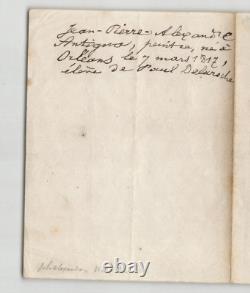 Jean-Pierre-Alexandre
Antigna, peintre, né à
Orléans le 7 mars 1817,
élève de Paul Delaroche
thebayside.com